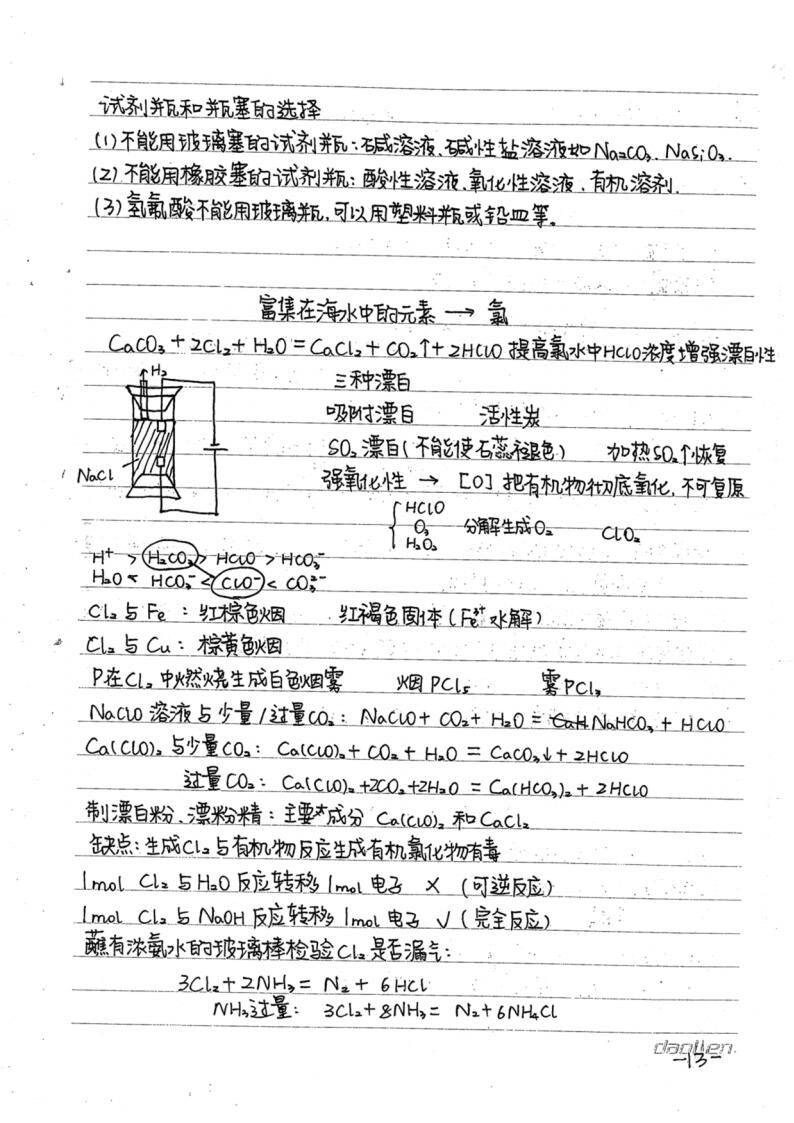 试剂瓶和瓶塞的选择
(1)不能用玻璃塞的试剂瓶:碱溶液、碱性盐溶液如Na₂CO₃、NaSiO₃.
(2)不能用橡胶塞的试剂瓶:酸性溶液、氧化性溶液、有机溶剂.
(3)氢氟酸不能用玻璃瓶,可以用塑料瓶或铅皿等。
富集在海水中的元素 → 氯
CaCO₃+2Cl₂+H₂O=CaCl₂+CO₂↑+2HClO 提高氯水中HClO浓度增强漂白性
H₂
三种漂白
吸附漂白 活性炭
SO₂漂白(不能使石蕊褪色) 加热SO₂↑恢复
NaCl
强氧化性 → [O]把有机物彻底氧化,不可复原
HClO
O₃ 分解生成O₂ ClO₂
H₂O₂
H⁺ > H₂CO₃ > HClO > HCO₃⁻
H₂O < HCO₃⁻ < ClO⁻ < CO₃²⁻
Cl₂与Fe:红棕色烟 红褐色固体(Fe³⁺水解)
Cl₂与Cu:棕黄色烟
P在Cl₂中燃烧生成白色烟雾 烟PCl₅ 雾PCl₃
NaClO溶液与少量/过量CO₂: NaClO+CO₂+H₂O=NaHCO₃+HClO
Ca(ClO)₂与少量CO₂: Ca(ClO)₂+CO₂+H₂O=CaCO₃↓+2HClO
过量CO₂: Ca(ClO)₂+2CO₂+2H₂O=Ca(HCO₃)₂+2HClO
制漂白粉、漂粉精:主要成分 Ca(ClO)₂和CaCl₂
缺点:生成Cl₂与有机物反应生成有机氯化物有毒
1mol Cl₂与H₂O反应转移1mol电子 × (可逆反应)
1mol Cl₂与NaOH反应转移1mol电子 √ (完全反应)
蘸有浓氨水的玻璃棒检验Cl₂是否漏气:
3Cl₂+2NH₃=N₂+6HCl
NH₃过量: 3Cl₂+8NH₃=N₂+6NH₄Cl
daolien
-13-